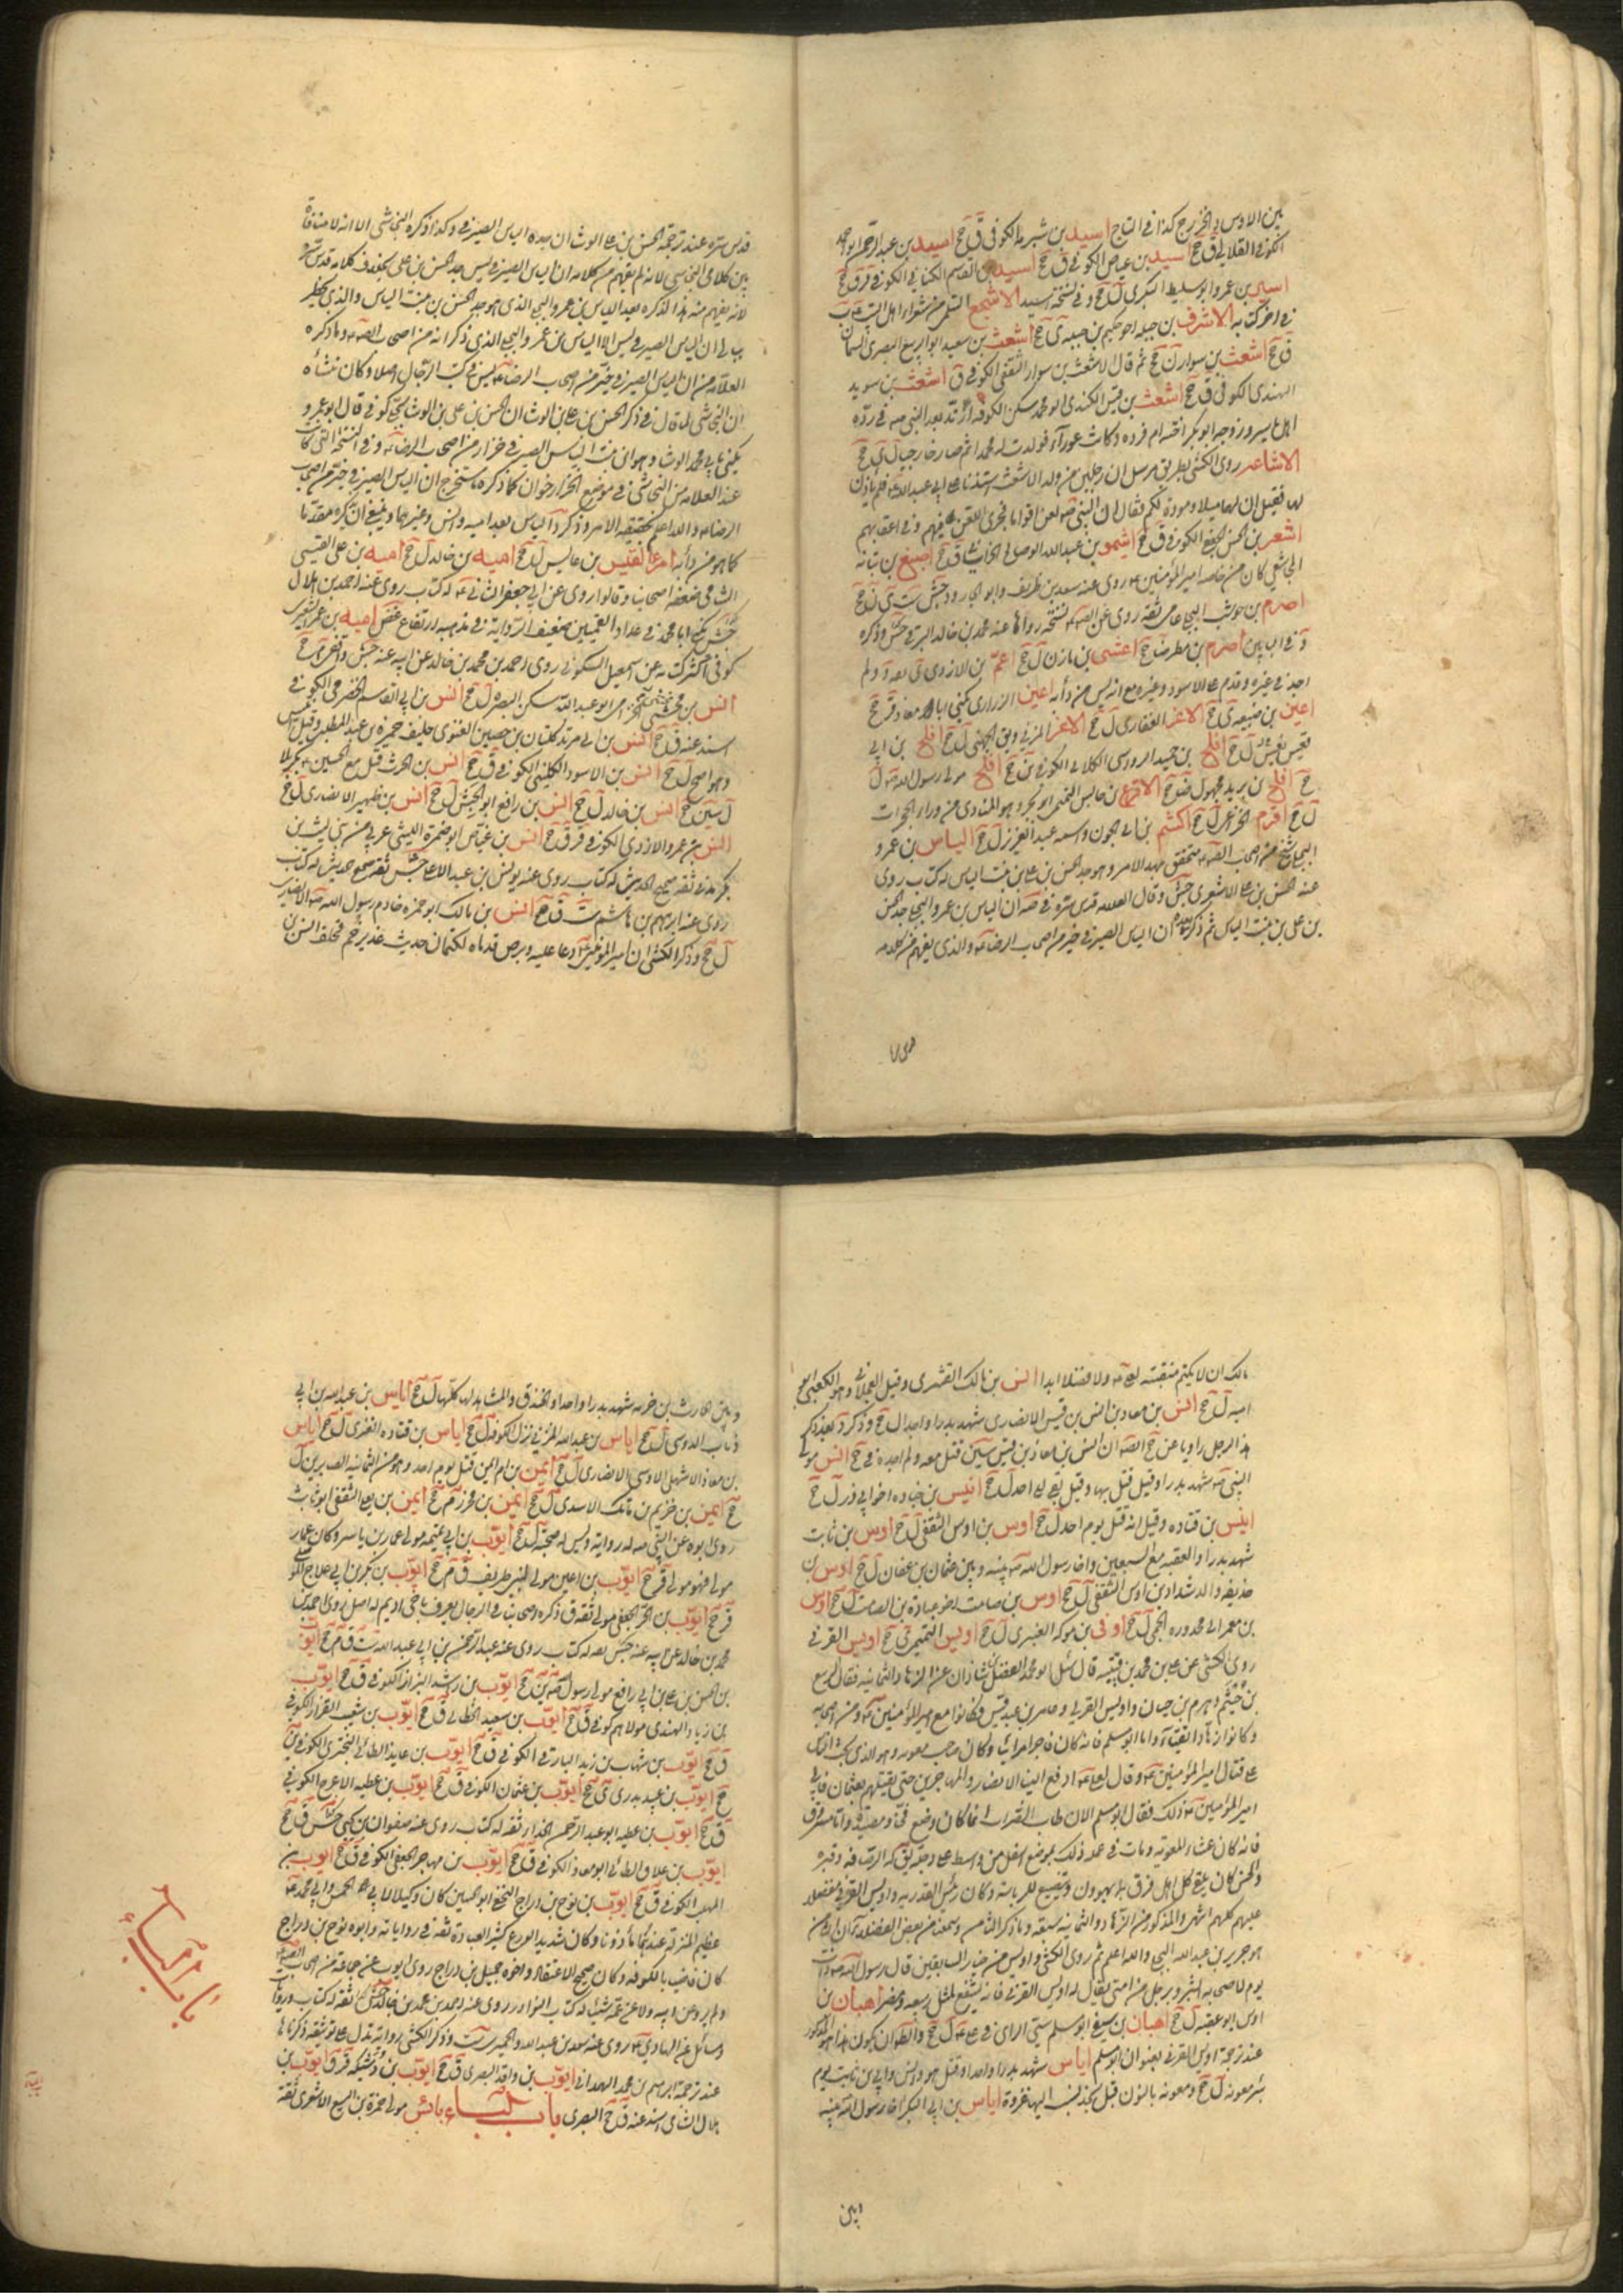 بين الاوس والخزرج كذا في التاج اسيد بن شبرمة الكوفي ق جخ اسيد بن عبد الرحمن ابو احمد
الكوفي القلايي ق جخ اسيد بن عياض الكوفي ق جخ اسيد بن القسم الكناني الكوفي قر ق جخ
اسير بن عمرو ابو سليط البكري ل جخ وفي نسخة اسيد الاشجع السلمي من شعراء اهل البيت
في اخر كتابه الاشرف بن جبلة اخو حكيم بن جبلة ي جخ اشعث بن سعيد ابو الربيع البصري السمان
ق جخ اشعث بن سوار ن جخ ثم قال الاشعث بن سوار الثقفي الكوفي ق اشعث بن سويد
النهدي الكوفي ق جخ اشعث بن قيس الكندي ابو محمد سكن الكوفة ارتد بعد النبي صه في ردة
اهل ياسر وزوجه ابو بكر اخته ام فروة وكانت عوراء فولدت له محمدا ثم صار خارجيا ل ي جخ
الاشاعر روى الكشي بطريق مرسل ان رجلين من ولد الاشعث استأذنا على ابي عبد الله فلم ياذن
لهما فقيل ان لهما ميلا ومودة لكم فقال ان النبي صه لعن اقواما فجرى اللعن فيهم وفي اعقابهم
اشعر بن الحسن الجعفي الكوفي ق جخ اشيم بن عبد الله ابو صالح الخراساني ق جخ اصبغ بن نباتة
المجاشعي كان من خاصة امير المؤمنين روى عنه سعد بن طريف وابو الجارود جش ست ي ن جخ
اصرم بن حوشب البجلي عامي ثقة روى عن الصه نسخة رواها عنه محمد بن خالد البرقي جش وذكره
د في البابين اصرم بن مطر ضا جخ اعشى بن مازن ل جخ اعم بن الازدي ي د ولم
اجد في غيره وقدم على الاسود وغيره مع انه ليس من دأبه اعين الرازي يكنى ابا معاذ قر جخ
اعين بن ضبيعة ي جخ الاغر الغفاري ل جخ الاغر المزني ويق الجهني ل جخ افلح بن ابي
قعيس ل جخ افلح بن حميد الرواسي الكلابي الكوفي ين جخ افلح مولى رسول الله صه ل
جخ افلح بن يزيد مجهول ضا جخ الاقرع بن حابس التميمي ابو بحر وهو المنادي من وراء الحجرات
ل جخ اقرم الخزاعي ل جخ اكثم بن ابي الجون واسمه عبد العزيز ل جخ الياس بن عمرو
البجلي شيخ من اصحاب الصه متحقق بهذا الامر وهو جد الحسن بن علي بن بنت الياس له كتاب روى
عنه الحسن بن علي الاشعري جش وقال العلامه قدس سره في صه ان الياس بن عمرو البجلي جد الحسن
بن علي بن بنت الياس ثم ذكر بعده ان الياس الصيرفي خير من اصحاب الرضا والذي يفهم من كلامه
قدس سره عند ترجمة الحسن بن علي الوشا ان جده الياس الصيرفي وكذا ذكره النجاشي الا انه لا منافاة
بين كلامي النجاشي لانه لم يفهم من كلامه ان الياس الصيرفي ليس جد الحسن بن علي بخلاف كلامه قدس سره
لانه يفهم منه هذا لذكره بعد الياس بن عمرو البجلي الذي هو جد الحسن بن بنت الياس والذي يخطر
ببالي ان الياس الصيرفي ليس الا الياس بن عمرو البجلي الذي ذكر انه من اصحاب الصه وما ذكره
العلامه من ان الياس الصيرفي خير من اصحاب الرضا ليس في كتب الرجال اصلا وكان منشأه
ان النجاشي لما قال في ذكر الحسن بن علي بن الوشا ان الحسن بن علي بن الوشا بجلي كوفي قال ابو عمرو
يكنى بابي محمد الوشا وهو ابن بنت الياس الصيرفي خزاز من اصحاب الرضا وفي النسخة التي كانت
عند العلامه من النجاشي في موضع الخزاز خيران كما ذكره فاستخرج ان الياس الصيرفي خير من اصحاب
الرضا والله اعلم بحقيقة الامر وذكر د الياس بعد امية وانس وغيرهما وينبغي ان يذكره مقدما
كما هو من دأبه امرء القيس بن عابس ل جخ امية بن خالد ل جخ امية بن علي القيسي
الشامي ضعفه اصحابنا وقالوا روى عن ابي جعفر الثاني له كتاب روى عنه احمد بن هلال
جش يكنى ابا محمد في عداد القميين ضعيف الرواية في مذهبه ارتفاع غض امية بن عمرو الشعيري
كوفي اكثر كتابه عن اسمعيل السكوني روى احمد بن محمد بن خالد عن ابيه عنه جش واقفي م جخ
انس بن ابو عبد الله سكن البصرة ل جخ انس بن ابي القاسم الحضرمي الكوفي
اسند عنه ق جخ انس بن ابي مرثد كناز بن حصين الغنوي حليف حمزة بن عبد المطلب وقيل انيس
وهو اصح ل جخ انس بن الاسود الكلبي الكوفي ق جخ انس بن الحرث قتل مع الحسين بكربلا
ل سين جخ انس بن خالد ل جخ انس بن رافع ابو الجيش ل جخ انس بن ظهير الانصاري ل جخ
انس بن عمرو الازدي الكوفي قر ق جخ انس بن عياض ابو ضمرة الليثي عربي من بني ليث بن
بكر مدني ثقة صحيح الحديث له كتاب روى عنه يونس بن عبد الاعلى جش ثقة صحيح حديثه له كتاب
روى عنه ابرهيم بن هاشم ست ق جخ انس بن مالك ابو حمزة خادم رسول الله صه الانصاري
ل جخ وذكر الكشي ان امير المؤمنين دعا عليه وبرص قدماه لكتمان حديث غدير خم فحلف انس بن
مالك ان لا يكتم منقبة لعلي ولا فضلا ابدا انس بن مالك القشيري وقيل العجلاني وهو الكعبي ابو
امية ل جخ انس بن معاذ بن انس بن قيس الانصاري شهد بدرا واحدا ل جخ وذكر د بعد ذكر
هذا الرجل راويا عن جخ الصه ان انس بن معاذ بن قيس سين قتل معه ولم اجده في جخ انس مولى
النبي صه شهد بدرا وقيل قتل بها وقيل بقي الى احد ل جخ انيس بن جنادة اخو ابي ذر ل جخ
انيس بن قتادة وقيل انه قتل يوم احد ل جخ اوس بن اوس الثقفي ل جخ اوس بن ثابت
شهد بدرا والعقبة مع السبعين واخا رسول الله صه بينه وبين عثمان بن عفان ل جخ اوس بن
حذيفة والد شداد بن اوس الثقفي ل جخ اوس بن صامت اخو عبادة بن الصامت ل جخ اوس
بن معير ابو محذورة الجمحي ل جخ اوفى بن موله العنبري ل جخ اويس التميمي ي جخ اويس القرني
روى الكشي عن علي بن محمد بن قتيبة قال سئل ابو محمد الفضل بن شاذان عن الزهاد الثمانية فقال الربيع
بن خيثم وهرم بن حيان واويس القرني وعامر بن عبد قيس وكانوا مع امير المؤمنين ومن اصحابه
وكانوا زهادا اتقياء واما ابو مسلم فانه كان فاجرا مرائيا وكان صاحب معوية وهو الذي يحث الناس
على قتال امير المؤمنين وقال لعلي ادفع الينا الانصار والمهاجرين حتى نقتلهم بعثمان فابى
امير المؤمنين ذلك فقال ابو مسلم الان طاب الضراب انما كان وضع فخا ومصيدة واما مسروق
فانه كان عشارا لمعوية ومات في عمله ذلك بموضع اسفل من واسط على دجلة يق له الرصافة وقبره
والحسن كان يلقى كل اهل فرق بما يهوون ويتصنع للرياسة وكان رئيس القدرية واويس القرني مفضلا
عليهم كلهم انتهى والمذكور من الزهاد الثمانية سبعة وما ذكر الثامن وسمعنا من بعض الفضلاء ان الثامن
هو جرير بن عبد الله البجلي والله اعلم ثم روى الكشي واويس من خيار التابعين قال رسول الله صه ذات
يوم لاصحابه ابشروا برجل من امتي يقال له اويس القرني فانه يشفع لمثل ربيعة ومضر اهبان بن
اوس ابو عقبة ل جخ اهبان بن صيفي ابو مسلم سيئ الراي في علي ل جخ والظاهر ان يكون هذا هو المذكور
عند ترجمة اويس القرني بعنوان ابو مسلم اياس شهد بدرا واحدا وقتل هو وانس وابي بن ثابت يوم
بئر معونة ل جخ ومعونة بالنون قبل نجد نسب اليها غزوة اياس بن ابي البكير اخا رسول الله صه بينه
وبين الحارث بن خزمة شهد بدرا واحدا والخندق والمشاهد كلها ل جخ اياس بن عبد الله بن ابي
ذباب الدوسي ل جخ اياس بن عبد الله المزني نزل الكوفة ل جخ اياس بن قتادة العنزي ل جخ اياس
بن معاذ الاشهلي الاوسي الانصاري ل جخ ايمن بن ام ايمن قتل يوم احد وهو من الثمانية الصابرين ل
جخ ايمن بن خزيم بن فاتك الاسدي ل جخ ايمن بن محرز م جخ ايمن بن يعلى الثقفي ابو ثابت
روى ابوه عن النبي صه له رواية وليس له صحبة ل جخ ايوب بن ابي تميمة مولى عمار بن ياسر وكان عمار
مولى فهو مولى ق جخ ايوب بن اعين مولى لبني طريف ق م جخ ايوب بن بكر بن ابي علاج الموصلي
قر جخ ايوب بن الحر الجعفي مولى ثقة ق ذكره اصحابنا في الرجال يعرف باخي اديم له اصل روى احمد بن
محمد بن خالد عن ابيه عنه جش له كتاب روى عنه عبد الرحمن بن ابي عبد الله ست ق م جخ ايوب
بن الحسن بن علي بن ابي رافع مولى رسول الله صه ين جخ ايوب بن راشد البزاز الكوفي ق جخ ايوب
بن زياد النهدي مولاهم كوفي ق جخ ايوب بن سعيد الخطابي ق جخ ايوب بن شعيب القزاز الكوفي
ق جخ ايوب بن شهاب بن زيد البارقي الكوفي ق جخ ايوب بن عايذ الطائي البختري الكوفي ين
جخ ايوب بن عبيد بدري ي جخ ايوب بن عثمان الكوفي ق جخ ايوب بن عطية الاعرج الكوفي
ق جخ ايوب بن عطية ابو عبد الرحمن الحذاء ثقة له كتاب روى عنه صفوان بن يحيى جش ق جخ
ايوب بن علاق الطائي ابو معاذ الكوفي ق جخ ايوب بن مهاجر الجعفي الكوفي ق جخ ايوب بن
المهلب الكوفي ق جخ ايوب بن نوح بن دراج النخعي ابو الحسين كان وكيلا لابي الحسن وابي محمد
عظيم المنزلة عندهما مأمونا وكان شديد الورع كثير العبادة ثقة في رواياته وابوه نوح بن دراج
كان قاضيا بالكوفة وكان صحيح الاعتقاد واخوه جميل بن دراج روى ايوب عن جماعة من اصحاب الصه
ولم يرو عن ابيه ولا عن عمه شيئا له كتاب النوادر روى عنه احمد بن محمد بن خالد جش ثقة له كتاب وروايات
ومسائل عن الهادي روى عنه سعد بن عبد الله والحميري ست وذكر الكشي رواية تدل على توثيقه ذكرناها
عند ترجمة ابرهيم بن محمد الهمداني ايوب بن واقد البصري ق جخ ايوب بن وشيكة قر ق ايوب بن
هلال الشامي اسند عنه ق جخ البصري باب الباء بائس مولى حمزة بن اليسع الاشعري ثقة
باب الباء